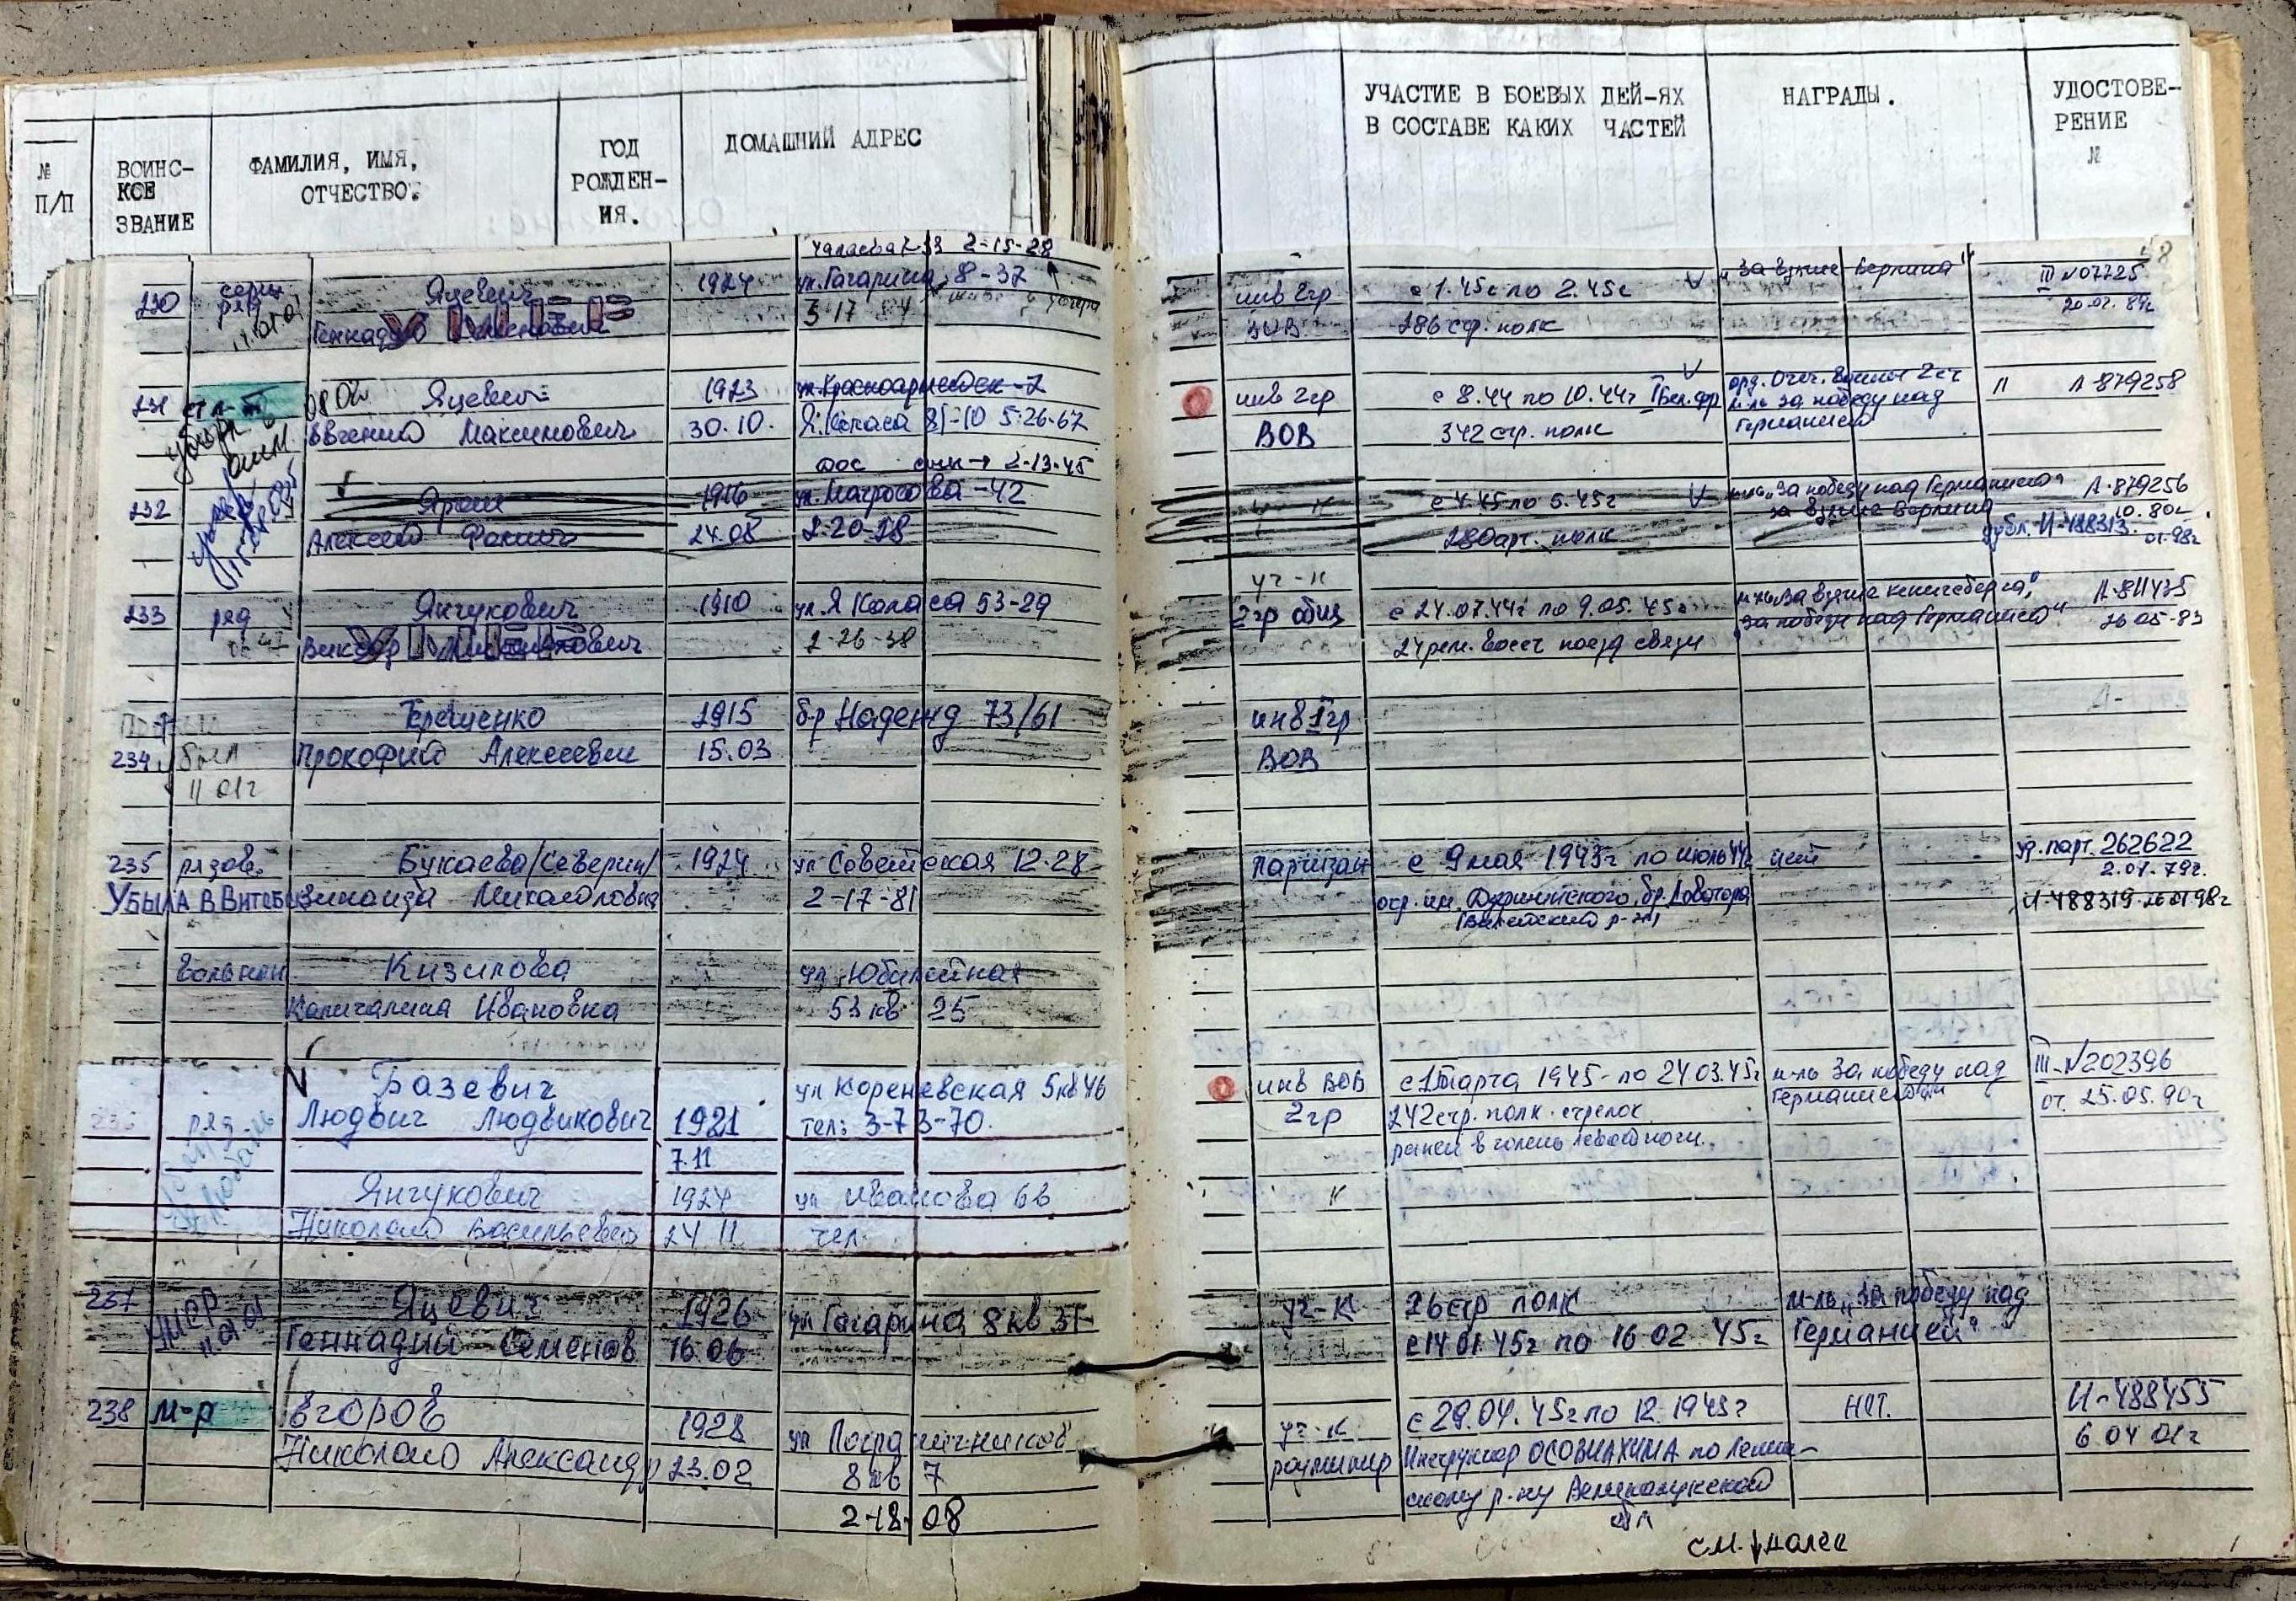 № П/П
ВОИНС-
КОЕ
ЗВАНИЕ
ФАМИЛИЯ, ИМЯ,
ОТЧЕСТВО.
ГОД
РОЖДЕН-
ИЯ.
ДОМАШНИЙ АДРЕС
УЧАСТИЕ В БОЕВЫХ ДЕЙ-ЯХ
В СОСТАВЕ КАКИХ ЧАСТЕЙ
НАГРАДЫ.
УДОСТОВЕ-
РЕНИЕ
№
2-15-28
230 Яцевич 1924 ул. Гагарина, 8-37
Геннадий
УМЕР
инв 2гр с 1.45г по 2.45г "За взятие Берлина" III №07725
ВОВ 286 стр. полк 20.02.84г
231 ст л-т Яцевич 1923
Евгений Максимович 30.10. Я.Коласа 81-10 5-26-67
2-13-45
инв 2гр с 8.44 по 10.44г орд. Отеч. войны 2 ст Л 879258
ВОВ 342 стр. полк м-ль за победу над
Германией
232 1916 ул. Матросова -42
Алексей Фомич 24.08 2-20-78
с 4.45 по 5.45г м-ль "За победу над Германией" Л-879256
280 арт. полк за взятие Берлина 10.80г
дубл. И-488313. 01.98г
233 ряд Янчукович 1910 ул. Я Коласа 53-29
Виктор 2-26-38
УМЕР
уч-к
2гр общ с 24.07.44г по 9.05.45г м-ль "За взятие Кенигсберга", Л-811435
24 рем. восст поезд связи "За победу над Германией" 26 05-83
Терещенко 1915 б-р Надежд 73/61
234 убыл Прокофий Алексеевич 15.03
11 01г
инв 1гр
ВОВ
235 рядов. Букаева/Северин/ 1924 ул Советская 12-28
УБЫЛА В Витебск Зинаида Михайловна 2-17-81
партизан с 9 мая 1943г по июль 44г нет уд. парт. 262622
отр. им. Дзержинского, бр. Доватора 2.07.79г.
(Вилейский р-н) И-488319 26 01 98г
вольнон. Кизилова ул Юбилейная
Капиталина Ивановна 53 кв 25
236 ряд. Базевич ул Кореневская 5 кв 46
Людвиг Людвикович 1921 тел: 3-73-70.
7.11
инв ВОВ с 1 марта 1945 - по 24 03.45г м-ль За победу над III-№202396
2гр 242 стр. полк. стрелок Германией от 25.05.90г
ранен в голень левой ноги.
Янчукович 1924 ул Иванова 6в
Николай Васильевич 24 11 тел
К
237 умер Яцевич 1926 ул Гагарина 8 кв 37
11.01.01 Геннадий Семенов 16 06
уч-к 26 стр полк м-ль "За победу над
с 14 01.45г по 16.02.45г Германией"
238 м-р Егоров 1928 ул Пограничников
Николай Александр 23.02 8 кв 7
2-18-08
уч-к с 29.04.45г по 12.1945г нет. И-488455
разминир Инструктор ОСОВИАХИМА по 6 04 01г
скому р-ну Великолукской
обл
см. далее